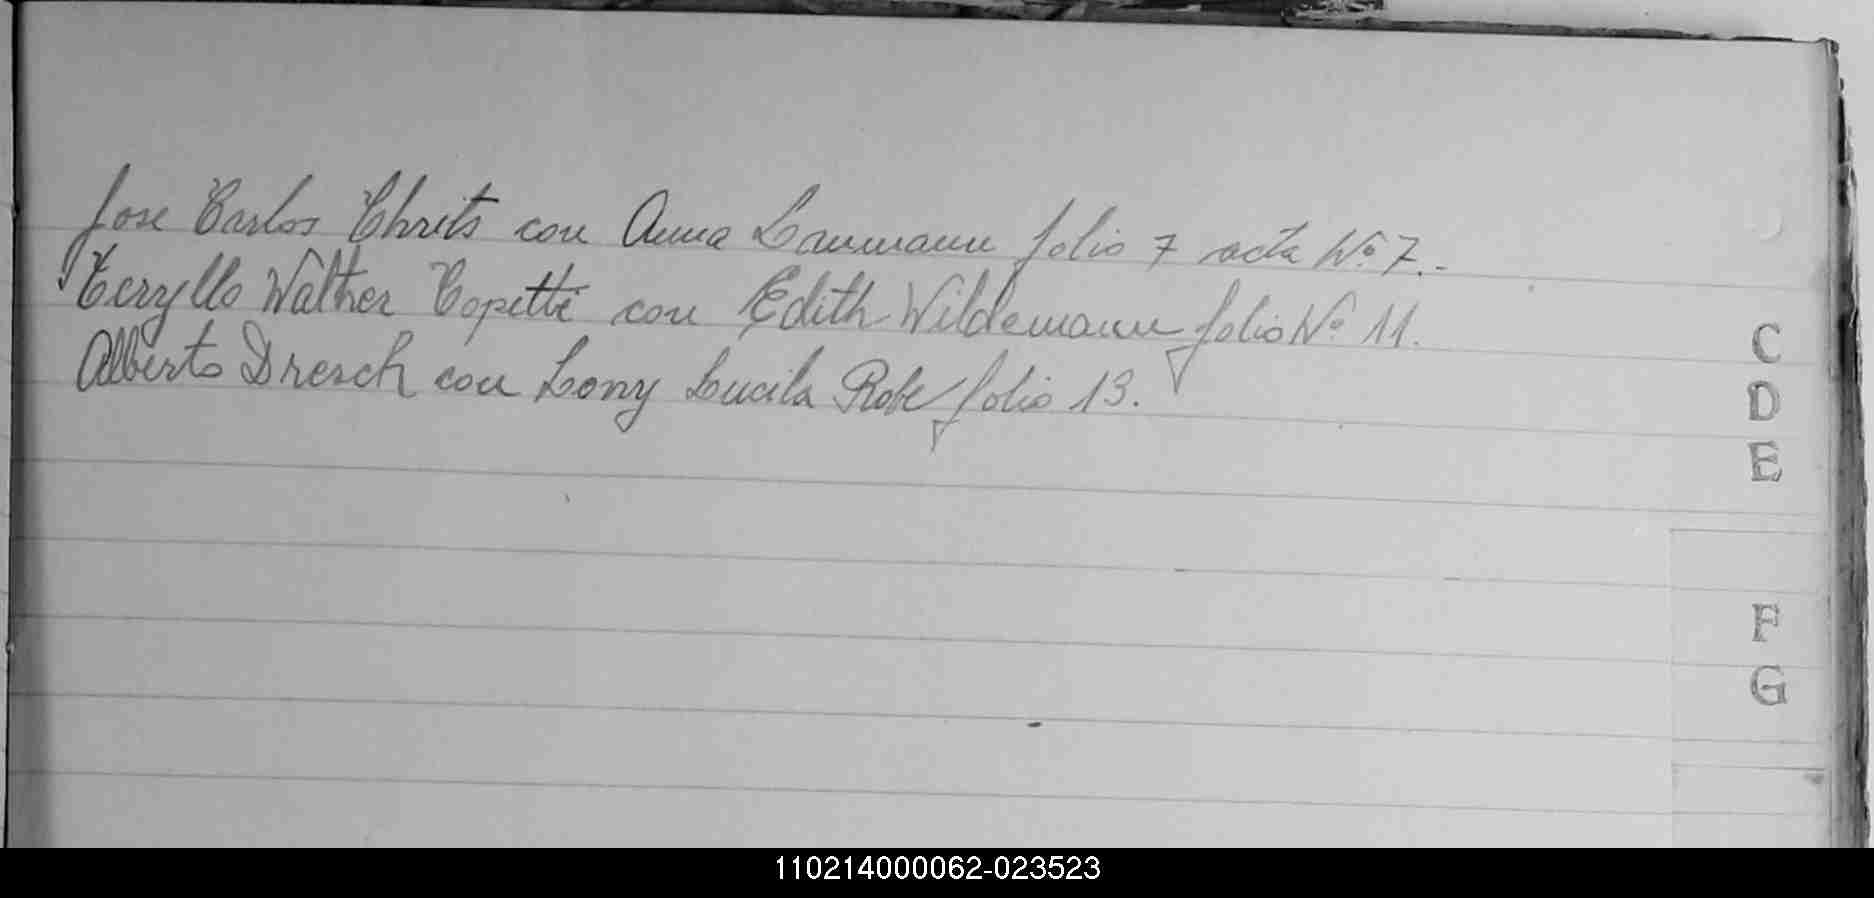 Jose Carlos Chrits con Anna Laumann folio 7 acta Nº 7.-
Ceryllo Walther Copetti con Edith Wildemann folio Nº 11.
Alberto Dresch con Lony Lucila Rohe folio 13.
C
D
E
F
G
110214000062-023523